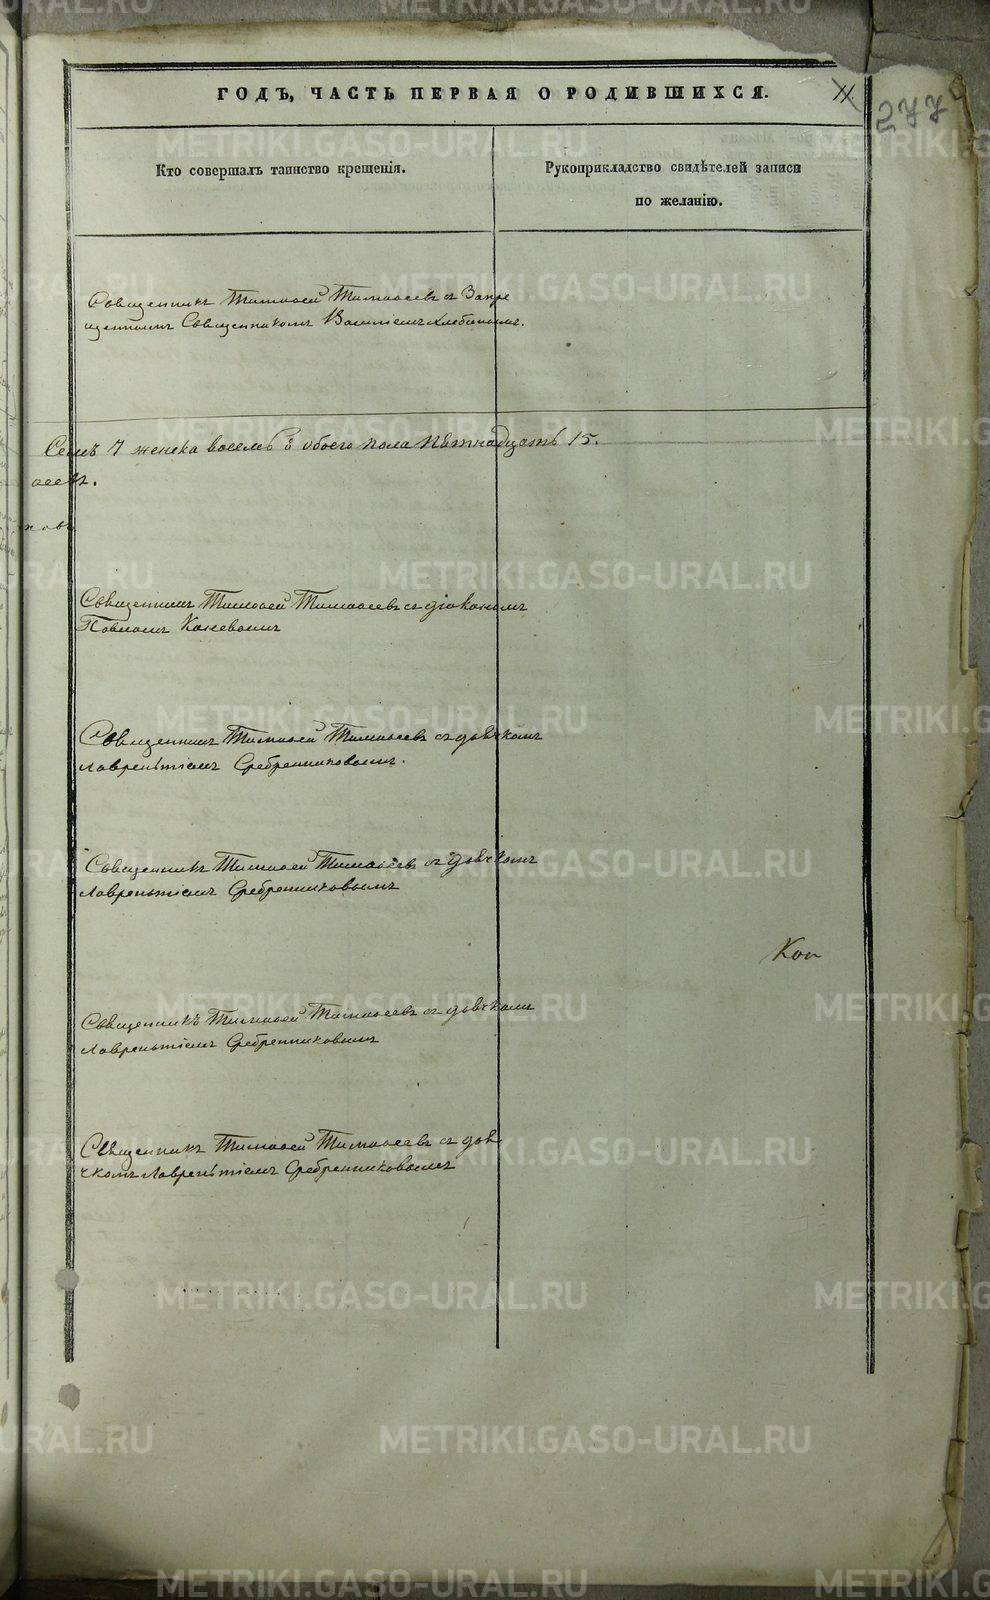 ГОДЪ, ЧАСТЬ ПЕРВАЯ О РОДИВШИХСЯ.
11
277
Кто совершалъ таинство крещенія.
Рукоприкладство свидѣтелей записи
по желанію.
Священникъ Тимоѳей Тимоѳеевъ съ Запре
щеннымъ Священникомъ Василіемъ Хлебинымъ.
Семь 7 женска восемь 8 обоего пола пятнадцать 15.
ѳеевъ.
новъ
Священникъ Тимоѳей Тимоѳеевъ съ діакономъ
Павломъ Коневымъ
Священникъ Тимоѳей Тимоѳеевъ съ дьячкомъ
Лаврентіемъ Сребренниковымъ.
Священникъ Тимоѳей Тимоѳеевъ съ дьячкомъ
Лаврентіемъ Сребренниковымъ
Коп
Священникъ Тимоѳей Тимоѳеевъ съ дьячкомъ
Лаврентіемъ Сребренниковымъ
Священникъ Тимоѳей Тимоѳеевъ съ дья
чкомъ Лаврентіемъ Сребренниковымъ
METRIKI.GASO-URAL.RU